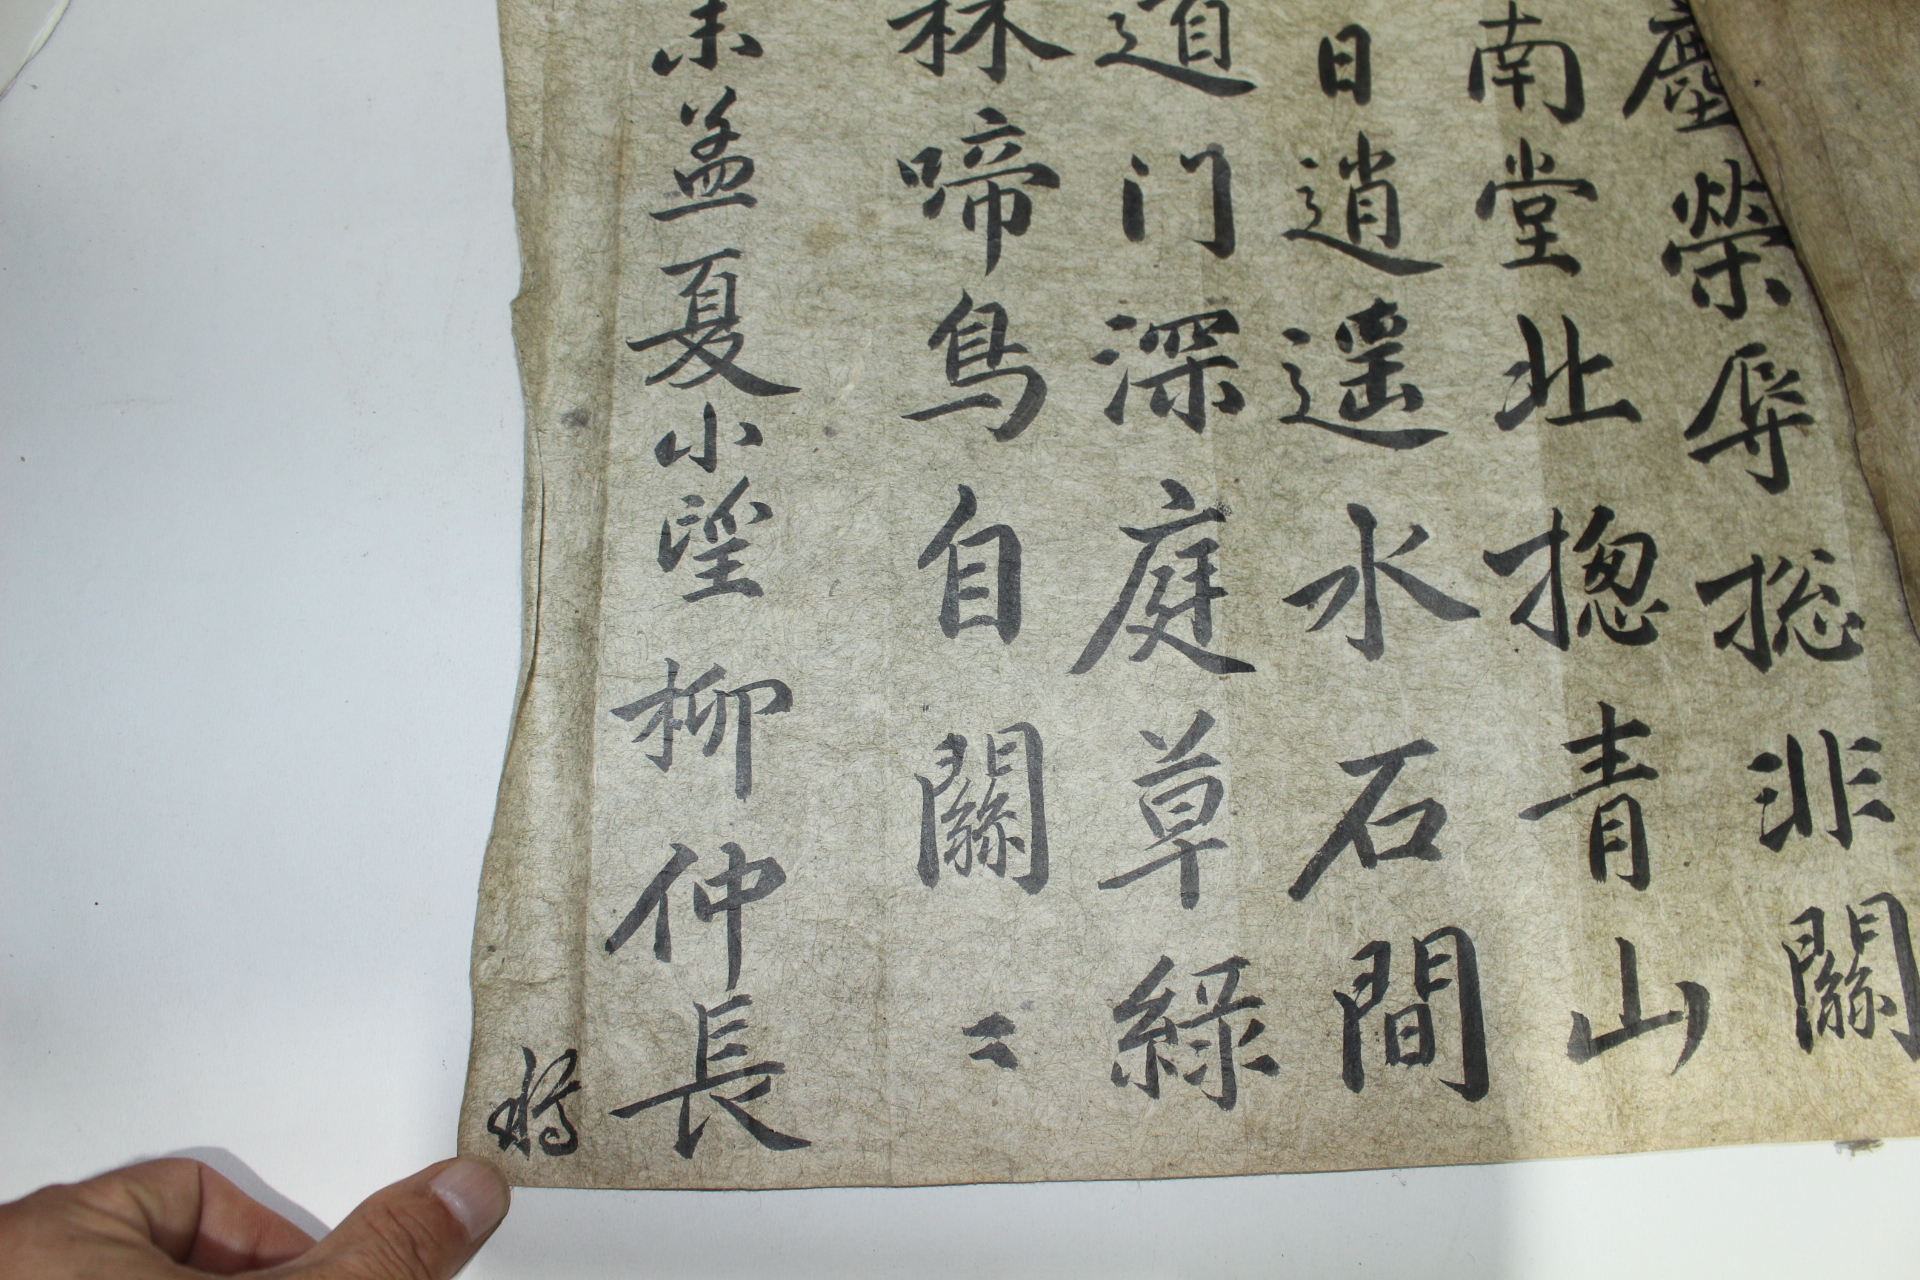 塵榮辱揔非關
南堂北揔青山
日逍遥水石間
道门深庭草緑
林啼鳥自關〻
未孟夏小望柳仲長